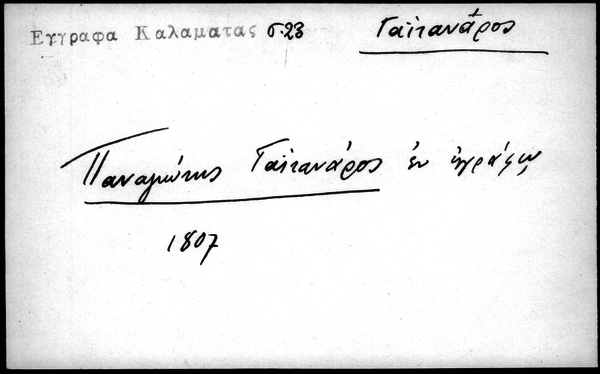 Εγγραφα Καλαματας σ.23 Γαϊτανάρος
Παναγιώτης Γαϊτανάρος ἐν ἐγγράφῳ
1807